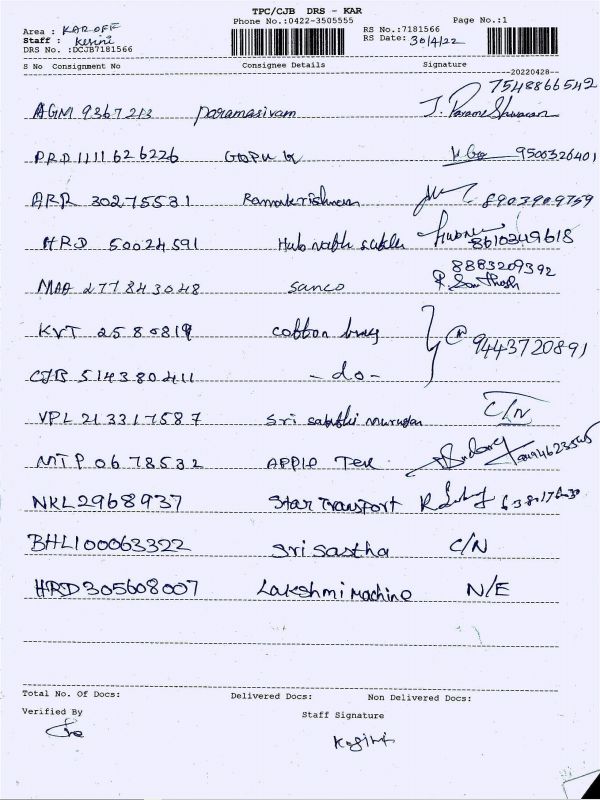 TPC/CJB DRS - KAR
Phone No.:0422-3505555 Page No.:1
Area : KAR OFF RS No.:7181566
Staff : RS Date: 30/4/22
DRS No. :DCJB7181566
S No Consignment No Consignee Details Signature
--20220428--
7548866542
AGM 9367213 Paramasivam J. Parameshwaran
PRD 1111626226 GOPU K 9500326401
ARR 30275531 Ramakrishnan 8903909759
HRD 50024591 Hub 8610349618
8883209392
MAA 277843048 Sanco R. Santhosh
KVT 2580819 Cotton
9443720891
CJB 514380411 -do-
VPL 213317587 Sri sakthi murugan C/N
MTP 0678532 APPLE Tex
NKL2968937 Star Transport
BHL100063322 Sri Sastha C/N
HRD305608007 Lakshmi Machine N/E
Total No. Of Docs: Delivered Docs: Non Delivered Docs:
Verified By Staff Signature